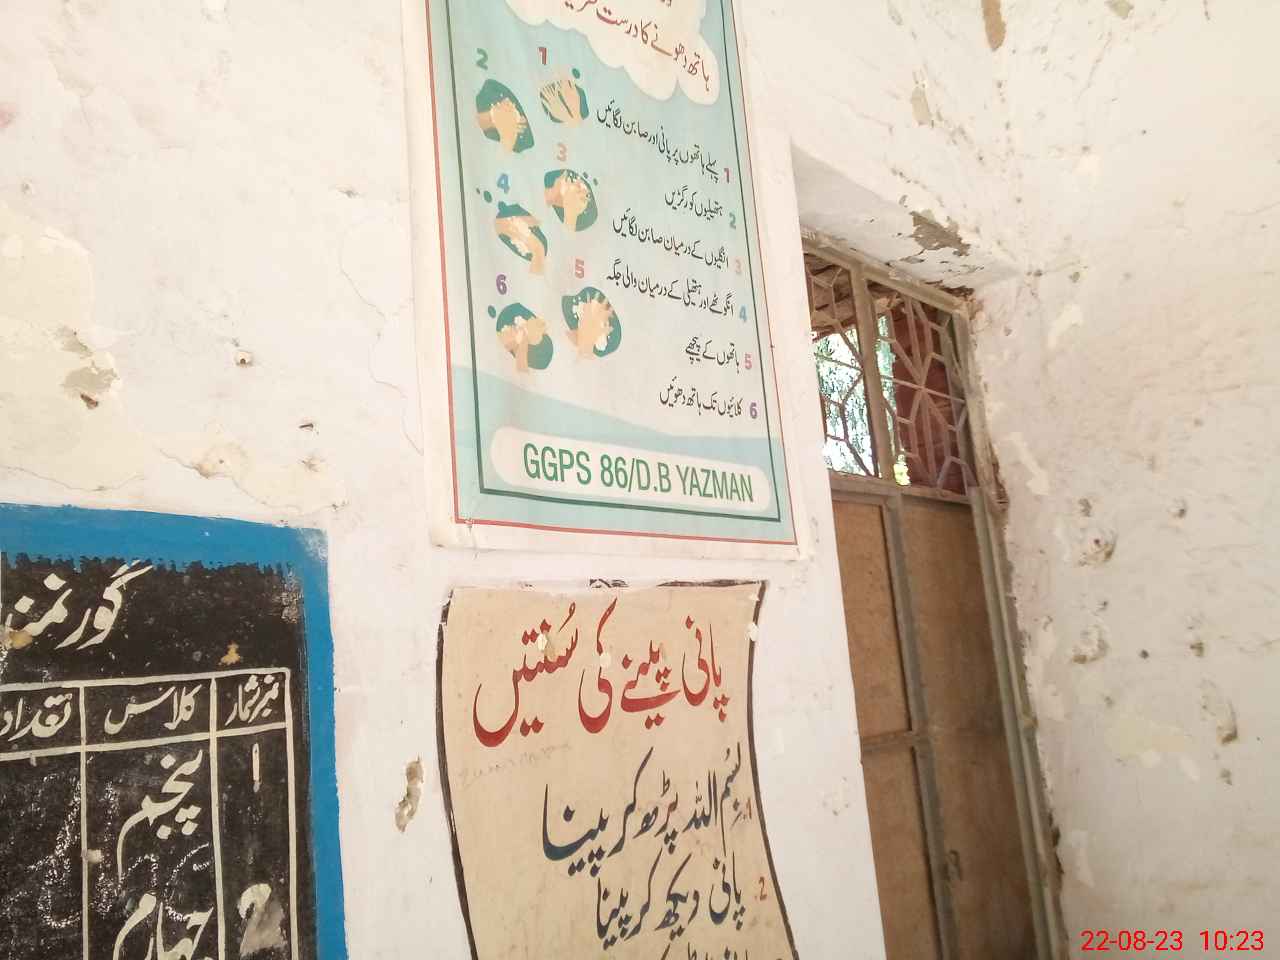 ہاتھ دھونے کا درست
1
2
3
4
5
6
1 پہلے ہاتھوں پر پانی اور صابن لگائیں
2 ہتھیلیوں کو رگڑیں
3 انگلیوں کے درمیان صابن لگائیں
4 انگوٹھے اور ہتھیلی کے درمیان والی جگہ
5 ہاتھوں کے پیچھے
6 کلائیوں تک ہاتھ دھوئیں
GGPS 86/D.B YAZMAN
پانی پینے کی سُنتیں
1. بسم اللہ پڑھ کر پینا
2. پانی دیکھ کر پینا
نمبر شمار کلاس تعداد
1 پنجم
2 چہارم
22-08-23 10:23